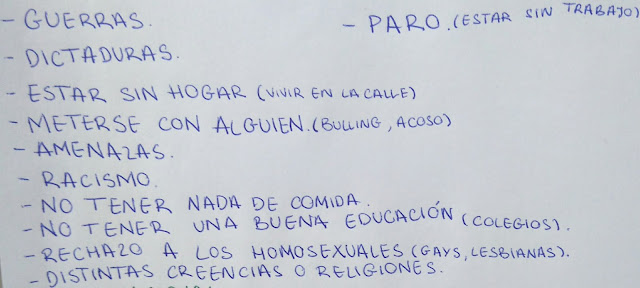 - GUERRAS.
- PARO. (ESTAR SIN TRABAJO)
- DICTADURAS.
- ESTAR SIN HOGAR (VIVIR EN LA CALLE)
- METERSE CON ALGUIEN. (BULLING, ACOSO)
- AMENAZAS.
- RACISMO.
- NO TENER NADA DE COMIDA.
- NO TENER UNA BUENA EDUCACIÓN (COLEGIOS).
- RECHAZO A LOS HOMOSEXUALES (GAYS, LESBIANAS).
- DISTINTAS CREENCIAS O RELIGIONES.